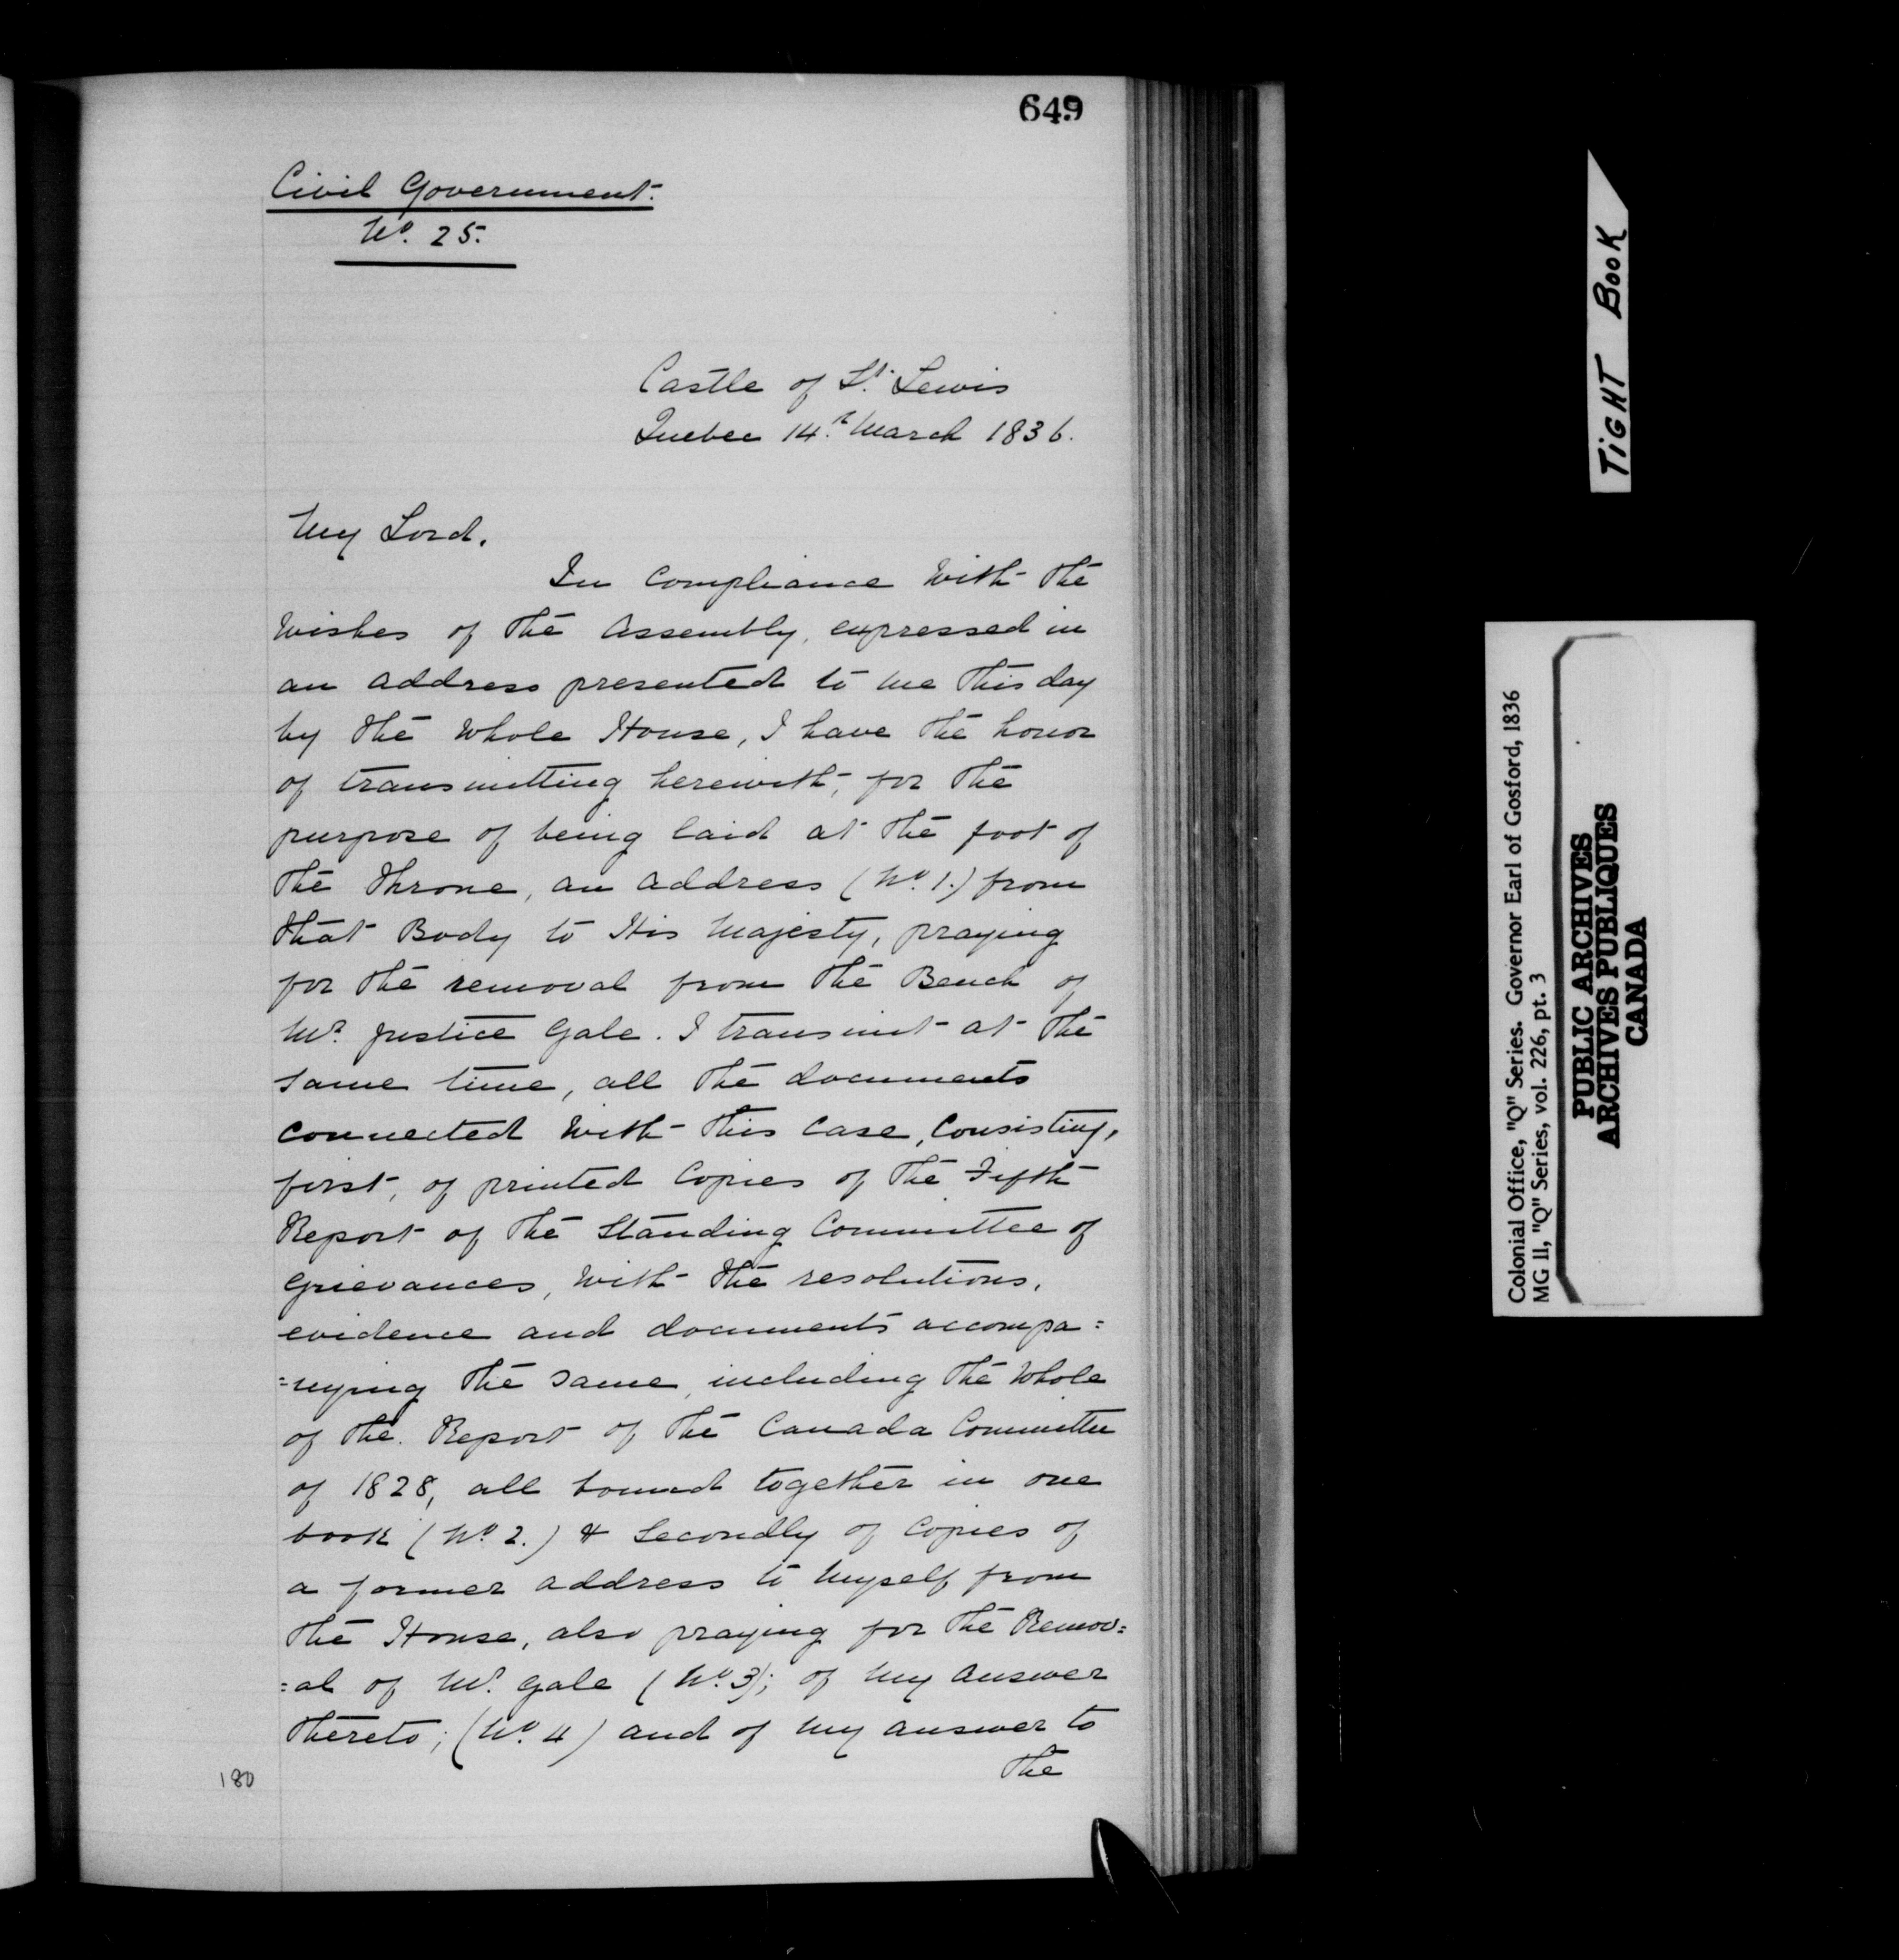 649
Civil Government.
No. 25.
Castle of St. Lewis
Quebec 14th March 1836.
My Lord,
In compliance with the
wishes of the Assembly, expressed in
an address presented to me this day
by the whole House, I have the honor
of transmitting herewith, for the
purpose of being laid at the foot of
the Throne, an address (No. 1.) from
that Body to His Majesty, praying
for the removal from the Bench of
Mr. Justice Gale. I transmit at the
same time, all the documents
connected with this case, consisting,
first, of printed copies of the Fifth
Report of the Standing Committee of
Grievances, with the resolutions,
evidence and documents accompa=
=nying the same, including the whole
of the Report of the Canada Committee
of 1828, all bound together in one
book (No. 2.) & Secondly of copies of
a former address to myself from
the House, also praying for the Remov=
=al of Mr. Gale (No. 3); of my answer
thereto; (No. 4) and of my answer to
the
180
TIGHT BOOK
Colonial Office, "Q" Series. Governor Earl of Gosford, 1836
MG 11, "Q" Series, vol. 226, pt. 3
PUBLIC ARCHIVES
ARCHIVES PUBLIQUES
CANADA